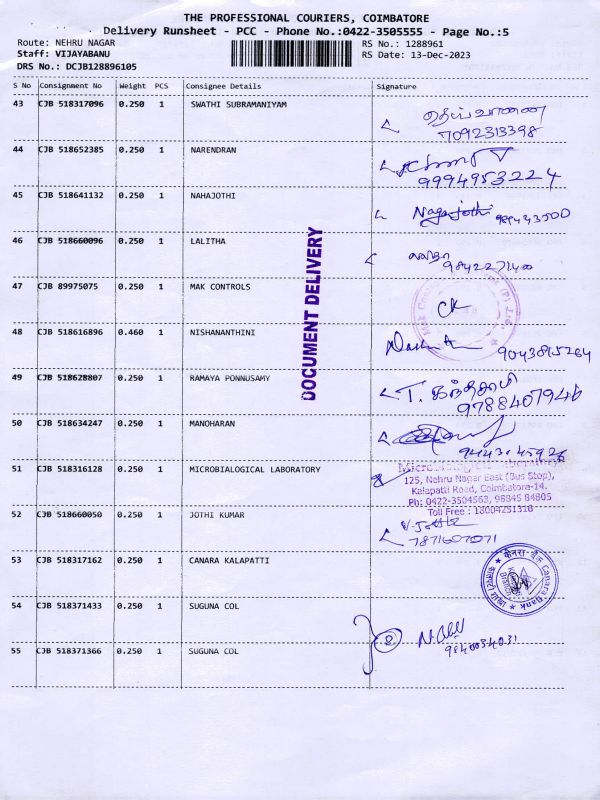 THE PROFESSIONAL COURIERS, COIMBATORE
Delivery Runsheet - PCC - Phone No.:0422-3505555 - Page No.:5
Route: NEHRU NAGAR
RS No.: 1288961
Staff: VIJAYABANU
RS Date: 13-Dec-2023
DRS No.: DCJB128896105
S No Consignment No Weight PCS Consignee Details Signature
43 CJB 518317096 0.250 1 SWATHI SUBRAMANIYAM
7092313398
44 CJB 518652385 0.250 1 NARENDRAN
9994953224
45 CJB 518641132 0.250 1 NAHAJOTHI
Nagajothi
46 CJB 518660096 0.250 1 LALITHA
லலிதா
9842271400
DOCUMENT DELIVERY
47 CJB 89975075 0.250 1 MAK CONTROLS
CK
48 CJB 518616896 0.460 1 NISHANANTHINI
9043815264
49 CJB 518628807 0.250 1 RAMAYA PONNUSAMY
9788407946
50 CJB 518634247 0.250 1 MANOHARAN
51 CJB 518316128 0.250 1 MICROBIALOGICAL LABORATORY
125, Nehru Nagar East (Bus Stop),
Kalapatti Road, Coimbatore-14.
Ph: 0422-3504563, 98845 84805
Toll Free : 18004251318
52 CJB 518660050 0.250 1 JOTHI KUMAR
7871607071
53 CJB 518317162 0.250 1 CANARA KALAPATTI
केनरा बैंक Canara Bank
54 CJB 518371433 0.250 1 SUGUNA COL
2
9840034031
55 CJB 518371366 0.250 1 SUGUNA COL